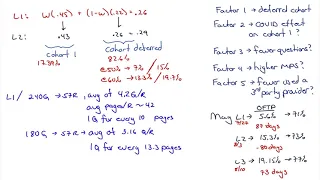 L1: W(.45) + (1-W)(.22) = .26
L2: .43 .26 → .29
cohort 1 cohort deferred
17.39% 82.6%
L1 / 240Q → 57R, avg of 4.2Q/R
avg pages/R ~42
1Q for every 10 pages
180Q → 57R → avg of 3.16 Q/R
1Q for every 13.3 pages
Factor 1 → deferred cohort
Factor 2 → COVID effect
on cohort 1 ?
Factor 3 → fewer questions?
Factor 4 → higher MPS?
Factor 5 → fewer used a
3rd party provider?
OFTP
May L1 → 5.6% → 71%
87 days
L2 → 15.3% → 73%
~80 days
L3 → 19.15% → 77%
73 days